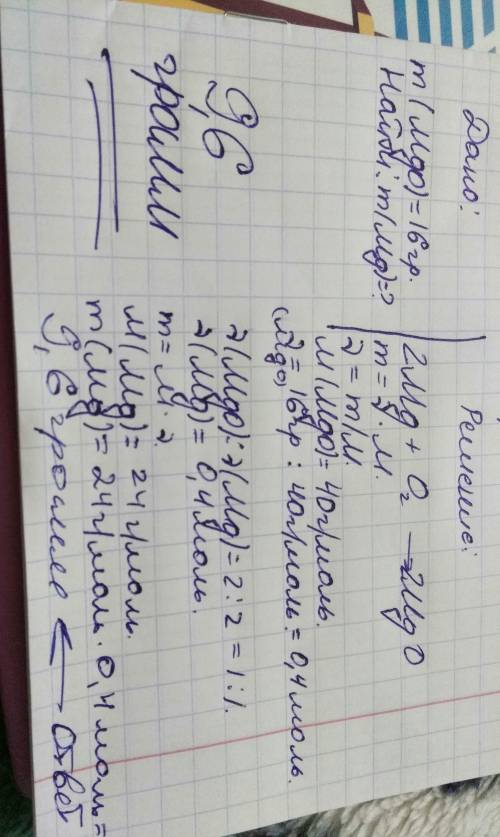 Дано:
m(MgO) = 16 гр.
Найти: m(Mg) = ?
Решение:
2Mg + O₂ → 2MgO
m = ν · M.
M(MgO) = 40 г/моль.
ν = m/M.
νMgO = 16 гр : 40 г/моль = 0,4 моль.
ν(MgO) : ν(Mg) = 2 : 2 = 1 : 1.
ν(Mg) = 0,4 моль.
m = M · ν.
M(Mg) = 24 г/моль.
m(Mg) = 24 г/моль · 0,4 моль =
9,6 грамм ← Ответ
9,6
грамм